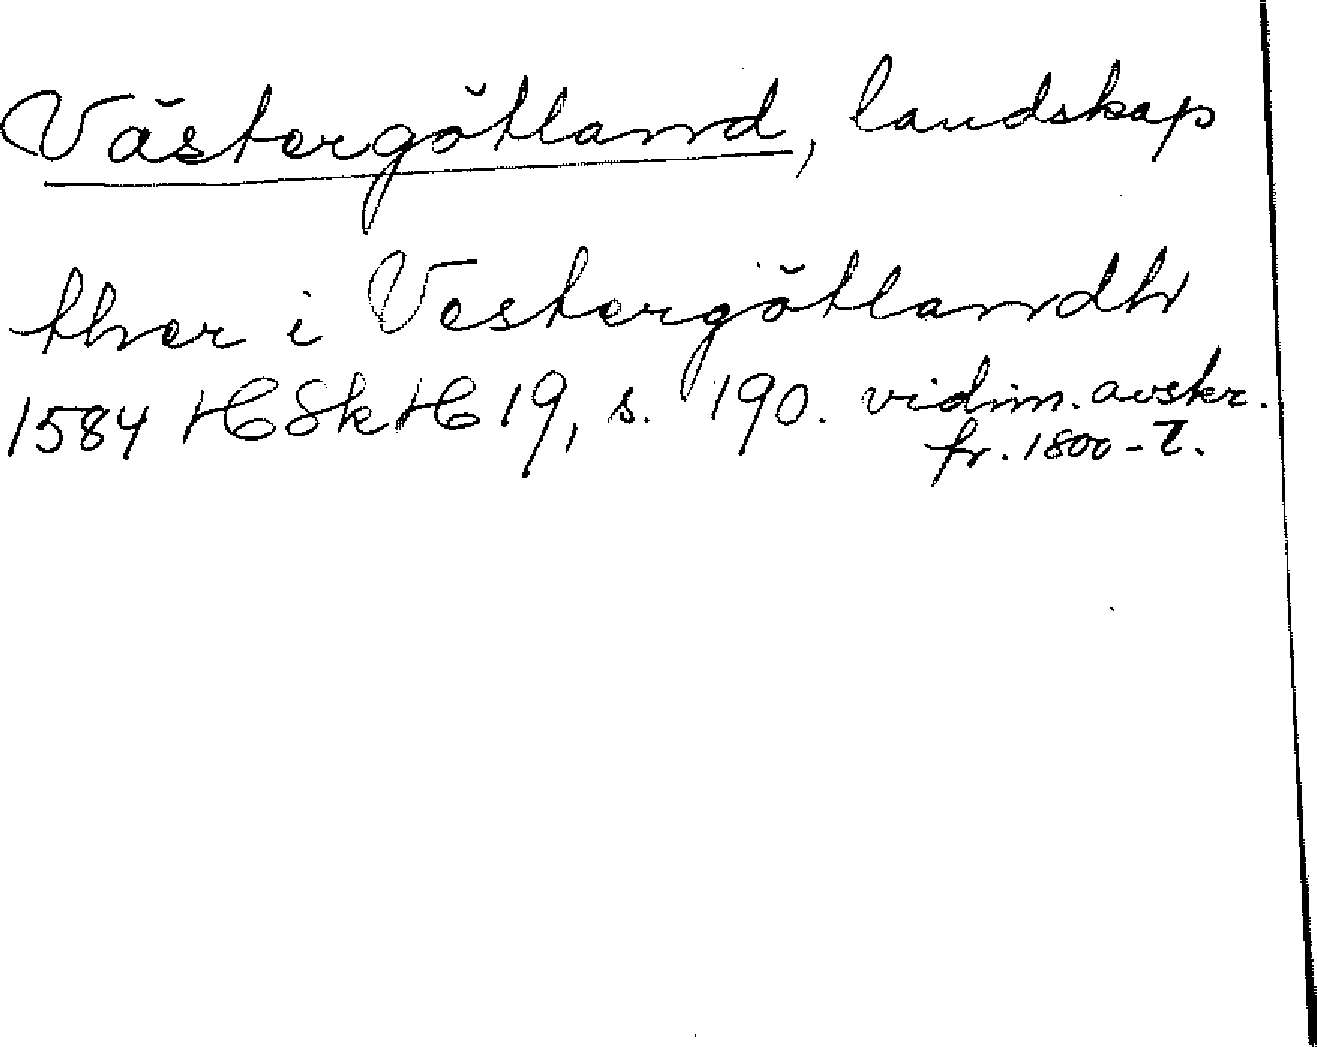 Västergötland, landskap
ther i Vestergötlandh
1584 HSkH 19, s. 190. vidim. avskr.
fr. 1800-t.